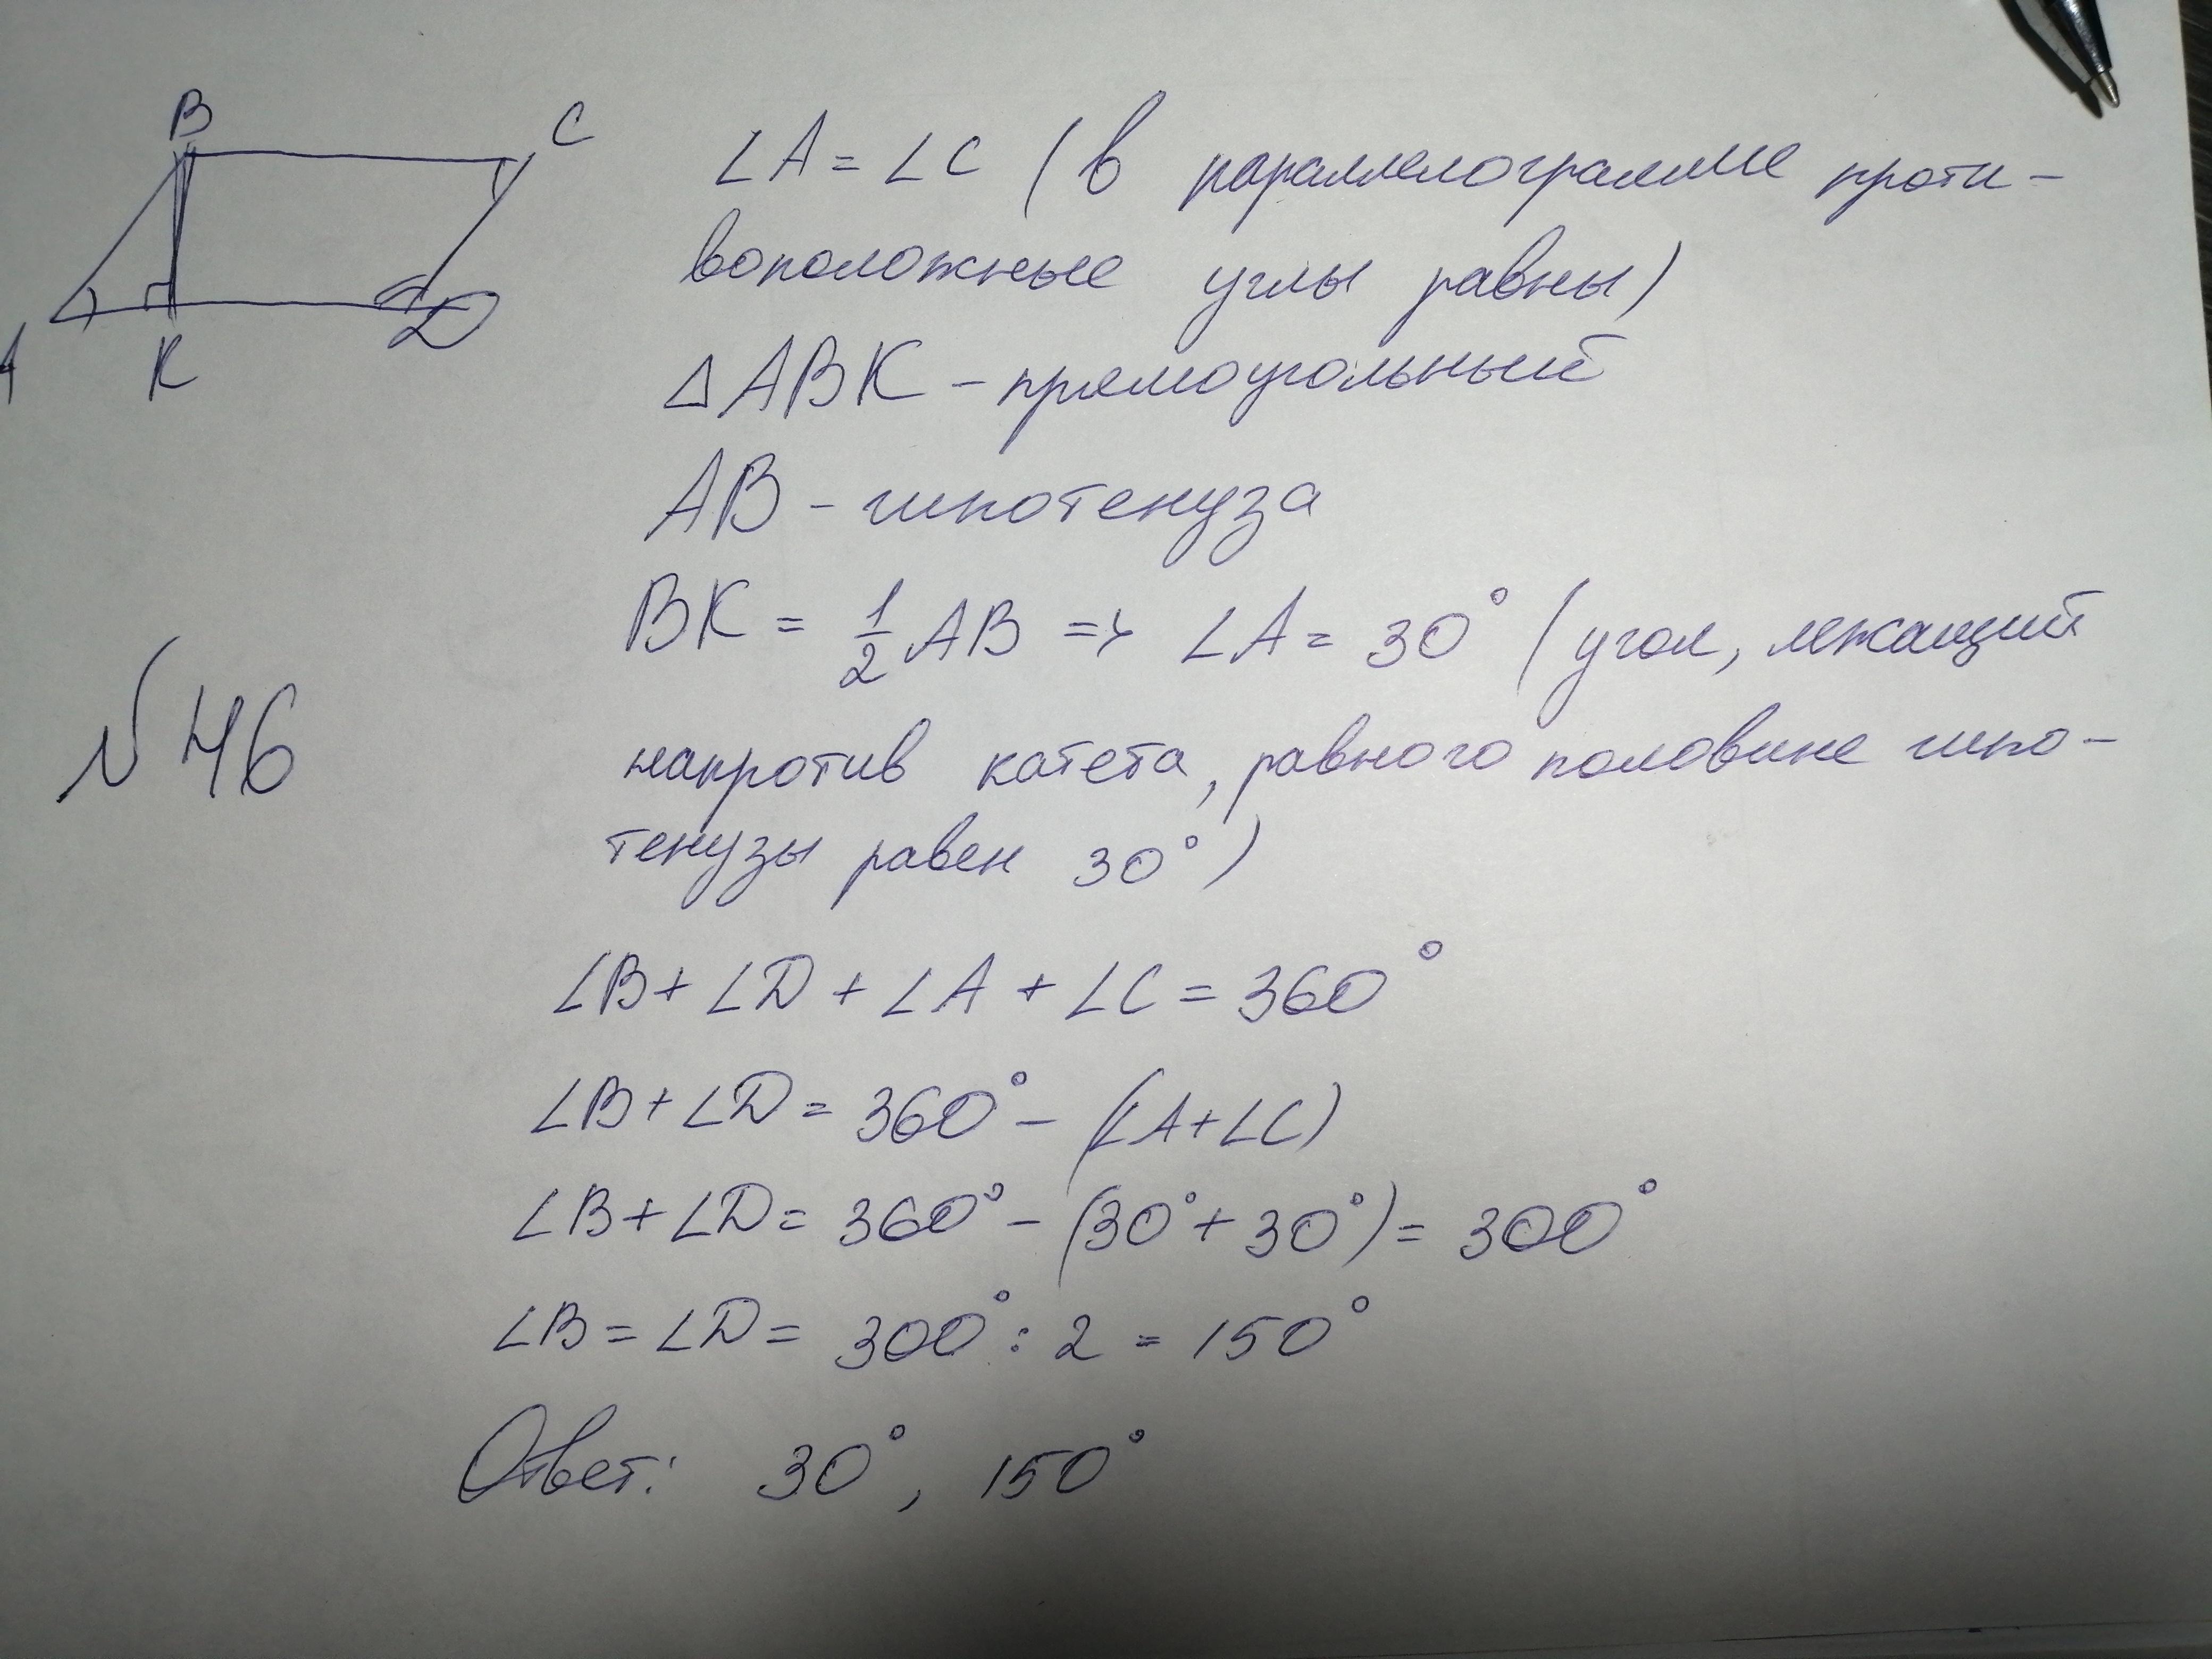 B
C
A
K
D
∠A = ∠C (в параллелограмме проти-
воположные углы равны)
△ABK - прямоугольный
AB - гипотенуза
BK = 1/2 AB => ∠A = 30° (угол, лежащий
№ 46
напротив катета, равного половине гипо-
тенузы равен 30°)
∠B + ∠D + ∠A + ∠C = 360°
∠B + ∠D = 360° - (∠A + ∠C)
∠B + ∠D = 360° - (30° + 30°) = 300°
∠B = ∠D = 300° : 2 = 150°
Ответ: 30°, 150°